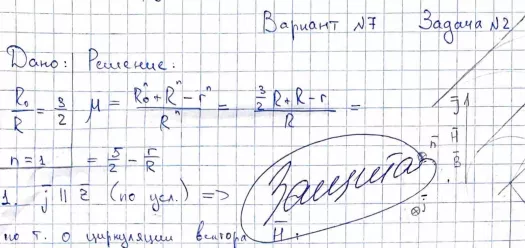 Вариант №7 Задача №2
Дано: Решение:
R₀/R = 3/2 μ = (R₀ⁿ + Rⁿ - rⁿ)/Rⁿ = (3/2 R + R - r)/R =
n = 1 = 5/2 - r/R
1. j̄ || z̄ (по усл.) => Защита
по т. о циркуляции вектора H̄:
j̄
n̄ H̄
B̄
⊗ j̄